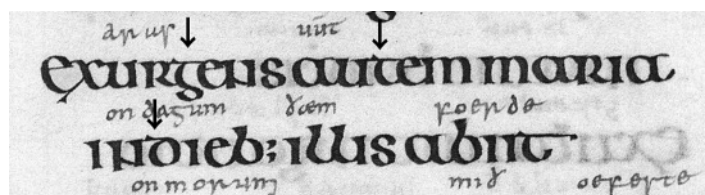 aras uut̄
exurgens autem maria
on dagum ðæm foerde
indieb; illis abiit
on morum mið oefeste